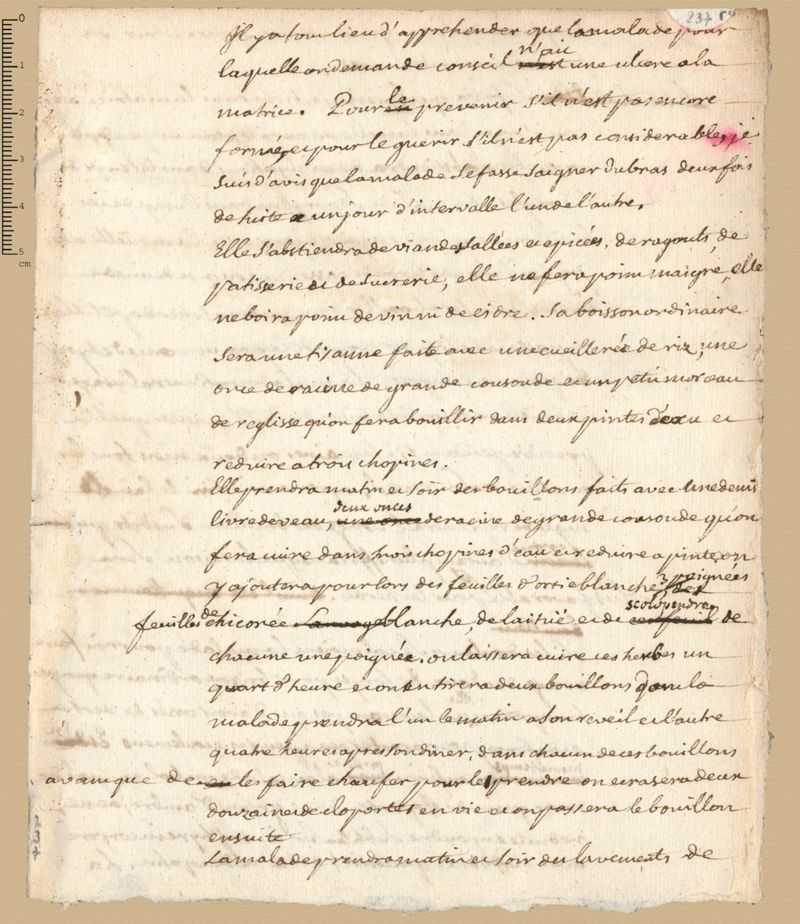 237
Il y a tout lieu d'apprehender que la malade pour
laquelle on demande conseil n'ait une ulcere a la
matrice. Pour le prevenir s'il n'est pas encore
formé, et pour le guerir s'il n'est pas considerable, je
suis d'avis que la malade se fasse saigner du bras deux fois
de suite a un jour d'intervalle l'un de l'autre.
Elle s'abstiendra de viandes sallées et epicées, de ragouts, de
patisserie et de sucrerie, elle ne fera point maigre, elle
ne boira point de vin ni de cidre. Sa boisson ordinaire
sera une tisanne faite avec une cueillerée de riz, une
once de racine de grande consoude et un petit morceau
de reglisse qu'on fera bouillir dans deux pintes d'eau et
reduire a trois chopines.
Elle prendra matin et soir des bouillons faits avec une demi
livre de veau, deux onces une once de racine de grande consoude qu'on
fera cuire dans trois chopines d'eau et reduire a pinte, on
y ajoutera pour lors des feuilles d'ortie blanche 2 poignées
feuilles de chicorée sauvage blanche, de laitue et de scolopendre cerfeuil de
chacune une poignée. on laissera cuire ces herbes un
quart d'heure et on en tirera deux bouillons dont la
malade prendra l'un le matin a son reveil et l'autre
quatre heures apres son diner, dans chacun de ces bouillons
avant que de les faire chaufer pour les prendre on ecrasera deux
douzaines de cloportes en vie et on passera le bouillon
ensuite
La malade prendra matin et soir des lavements de
0
1
2
3
4
5
cm